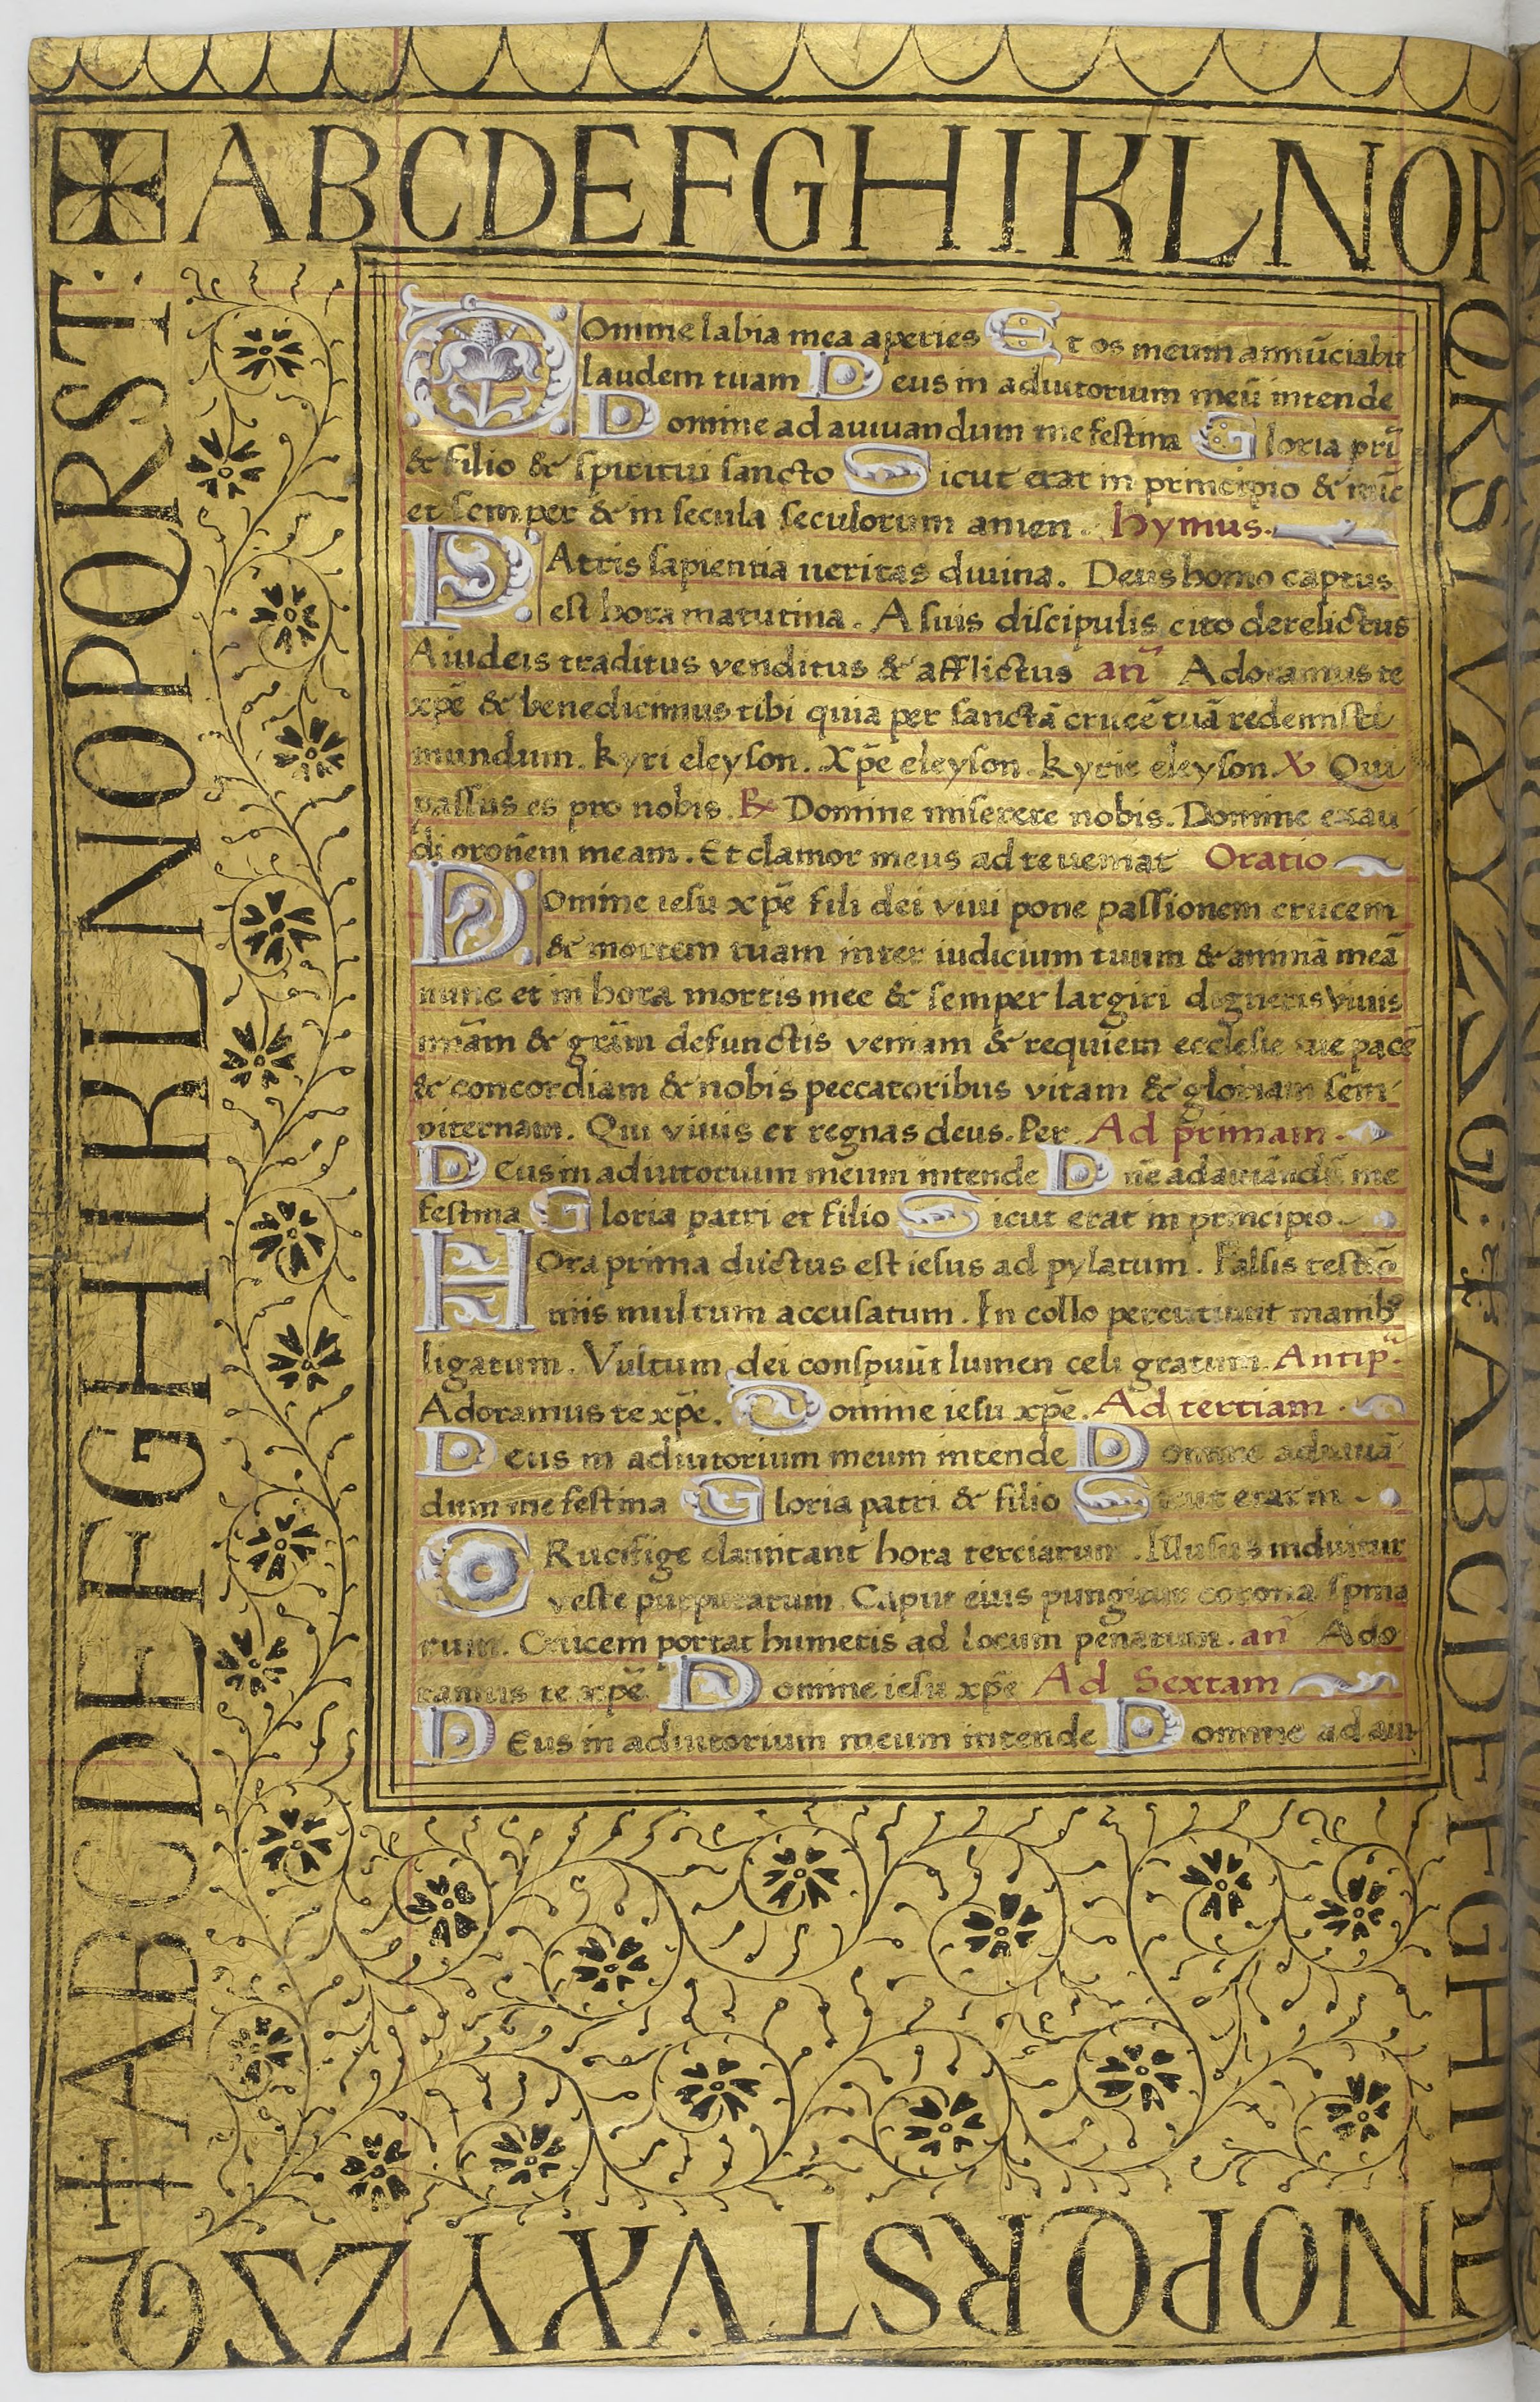 ABCDEFGHIKLNOP
QRSTVXYZ ABCDEFGHIKL
NOPQRSTVXYZ
ABCDEFGHIKLNOPQRST
Domine labia mea aperies Et os meum annūciabit
laudem tuam Deus in adiutorium meū intende
Domine ad aiuuandum me festina Gloria pri̅
& filio & spiritui sancto Sicut erat in principio &
et semper & in secula seculorum amen. hymus.
PAtris sapientia ueritas diuina. Deus homo captus
est hora matutina. A suis discipulis cito derelictus
A iudeis traditus venditus & afflictus an̄ Adoramus te
xpē & benedicimus tibi quia per sanctā crucē tuā redemisti
mundum. kyri eleyson. Xpē eleyson. kyrie eleyson. V Qui
passus es pro nobis. ℞ Domine miserere nobis. Domine exau
di oroñem meam. Et clamor meus ad te ueniat Oratio
Domine iesu xpē fili dei viui pone passionem crucem
& mortem tuam inter iudicium tuum & animā meā
nunc et in hora mortis mee & semper largiri digneris viuis
miām & grām defunctis veniam & requiem ecclesie tue pacē
& concordiam & nobis peccatoribus vitam & gloriam sem
piternam. Qui viuis et regnas deus. Per Ad primam.
DEus in adiutorium meum intende Dn̄e ad aiuuādū me
festina Gloria patri et filio Sicut erat in principio.
HOra prima ductus est iesus ad pylatum. Falsis testio
niis multum accusatum. In collo percutiunt manib9
ligatum. Vultum dei conspuūt lumen celi gratum. Antip̄.
Adoramus te xpē. Domine iesu xpē. Ad tertiam.
DEus in adiutorium meum intende Domine ad aiuuā
dum me festina Gloria patri & filio Sicut erat in
CRucifige clamitant hora terciarum. Illusus induitur
veste purpuratum. Caput eius pungitur corona spina
rum. Crucem portat humeris ad locum penarum. an̄ Ado
ramus te xpē Domine iesu xpē Ad Sextam
DEus in adiutorium meum intende Domine ad aiu